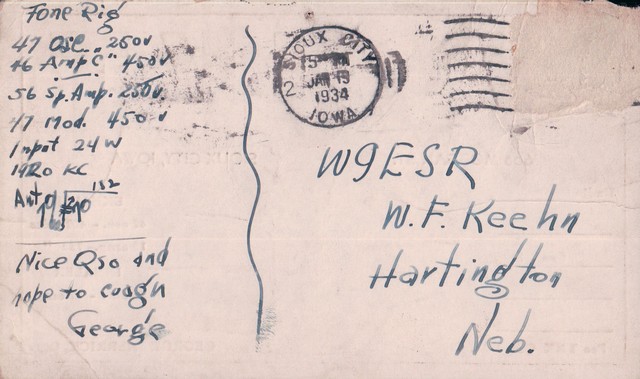 Fone Rig
47 Osc. 250v
46 Amp "C" 450v
56 Sp. Amp. 250v
47 Mod. 450v
Input 24 W
1920 KC
Ant 132
Nice Qso and
hope to cuagn
George
SIOUX CITY
2
JAN 19
1934
IOWA
W9ESR
W.F. Keehn
Hartington
Neb.